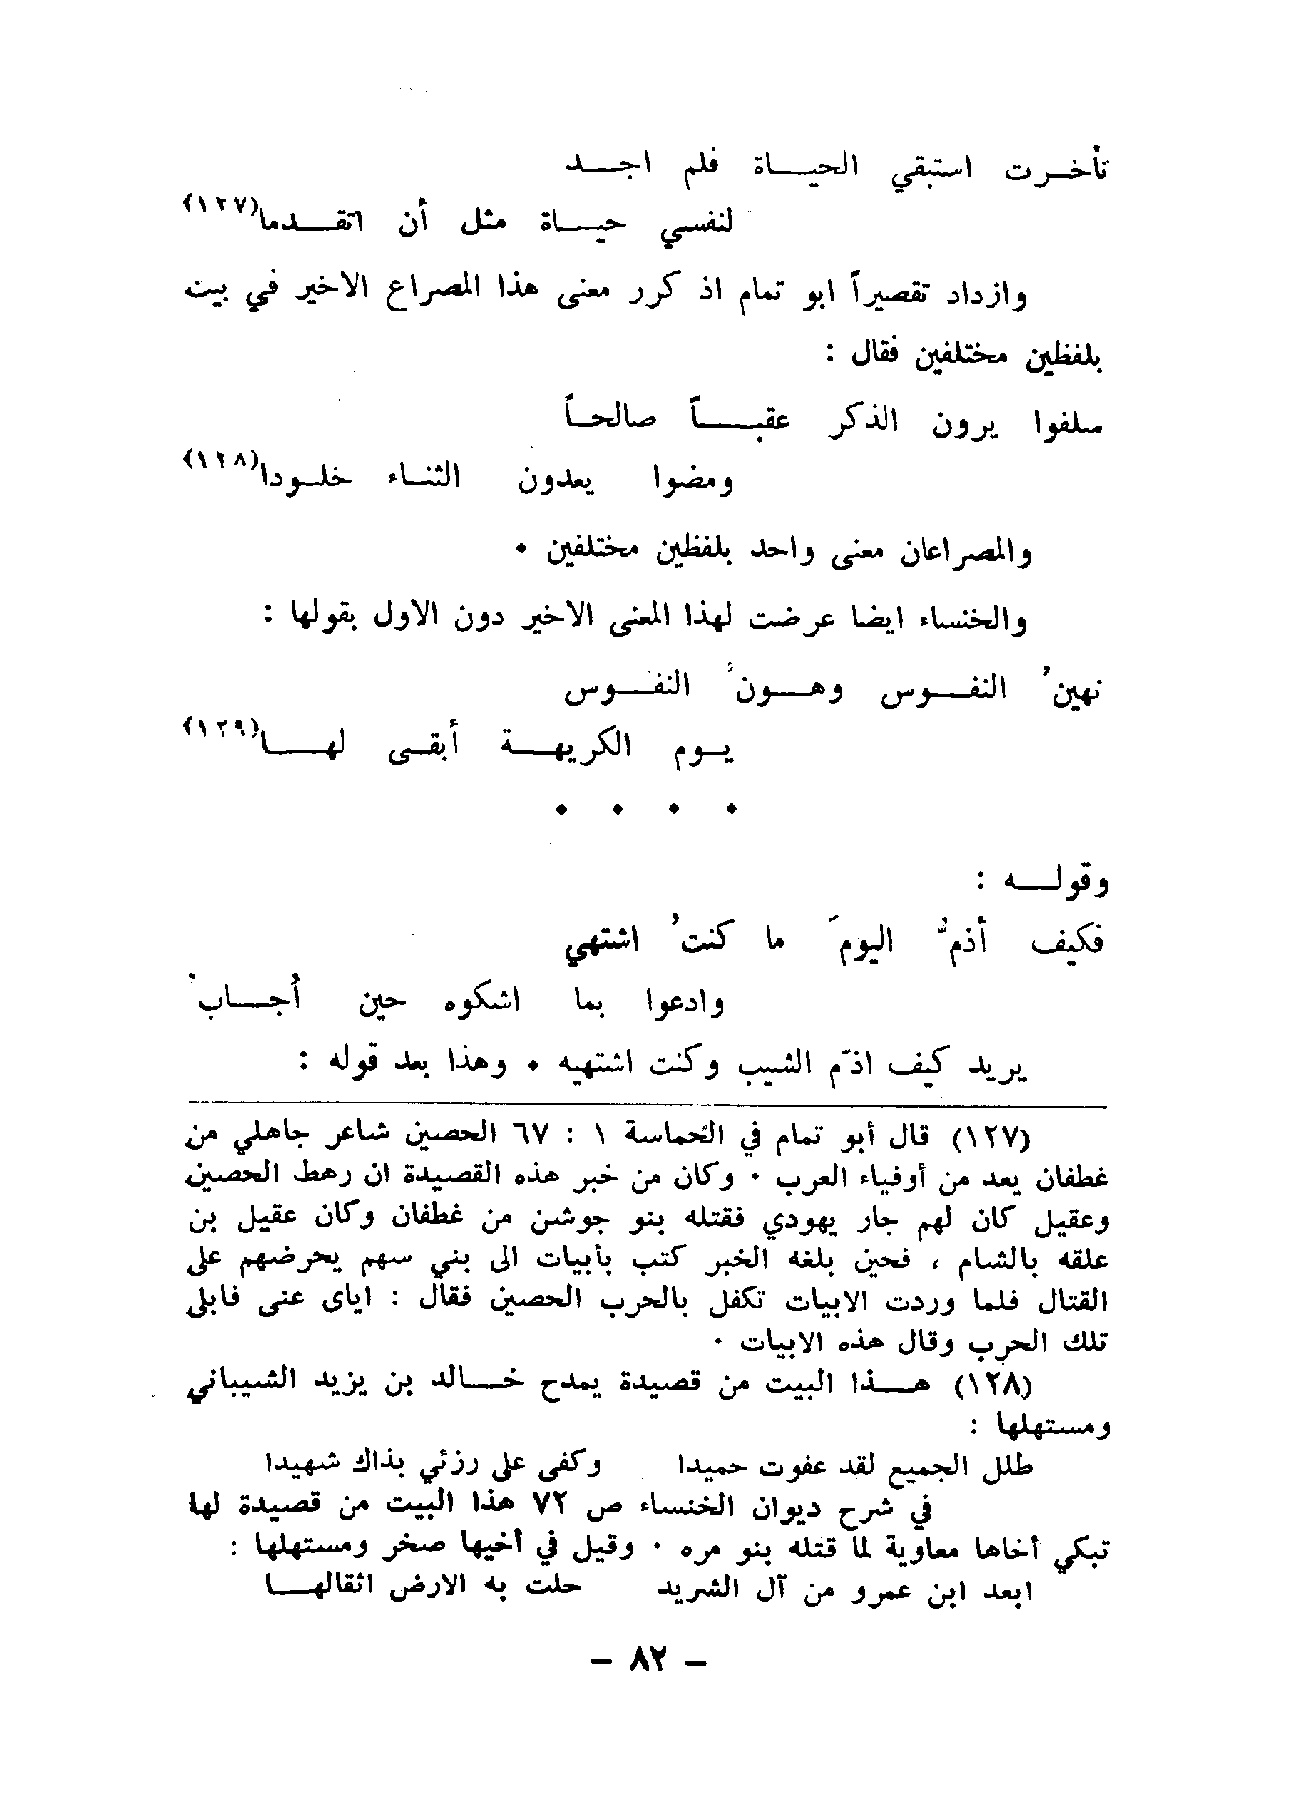 تأخرت استبقي الحياة فلم اجد
لنفسي حياة مثل أن اتقدما(١٢٧)
وازداد تقصيراً ابو تمام اذ كرر معنى هذا المصراع الاخير في بيت
بلفظين مختلفين فقال :
سلفوا يرون الذكر عقباً صالحاً
ومضوا يعدون الثناء خلودا(١٢٨)
والمصراعان معنى واحد بلفظين مختلفين ٠
والخنساء ايضا عرضت لهذا المعنى الاخير دون الاول بقولها :
نهينُ النفوس وهونُ النفوس
يوم الكريهة أبقى لها(١٢٩)
٠ ٠ ٠ ٠
وقوله :
فكيف أذمُّ اليومَ ما كنتُ اشتهي
وادعوا بما اشكوه حين أُجابُ
يريد كيف اذمّ الشيب وكنت اشتهيه ٠ وهذا بعد قوله :
(١٢٧) قال أبو تمام في الحماسة ١ : ٦٧ الحصين شاعر جاهلي من
غطفان يعد من أوفياء العرب ٠ وكان من خبر هذه القصيدة ان رهط الحصين
وعقيل كان لهم جار يهودي فقتله بنو جوشن من غطفان وكان عقيل بن
علقه بالشام ، فحين بلغه الخبر كتب بأبيات الى بني سهم يحرضهم على
القتال فلما وردت الابيات تكفل بالحرب الحصين فقال : اياى عنى فابلى
تلك الحرب وقال هذه الابيات ٠
(١٢٨) هذا البيت من قصيدة يمدح خالد بن يزيد الشيباني
ومستهلها :
طلل الجميع لقد عفوت حميدا وكفى على رزئي بذاك شهيدا
في شرح ديوان الخنساء ص ٧٢ هذا البيت من قصيدة لها
تبكي أخاها معاوية لما قتله بنو مره ٠ وقيل في أخيها صخر ومستهلها :
ابعد ابن عمرو من آل الشريد حلت به الارض اثقالها
– ٨٢ –